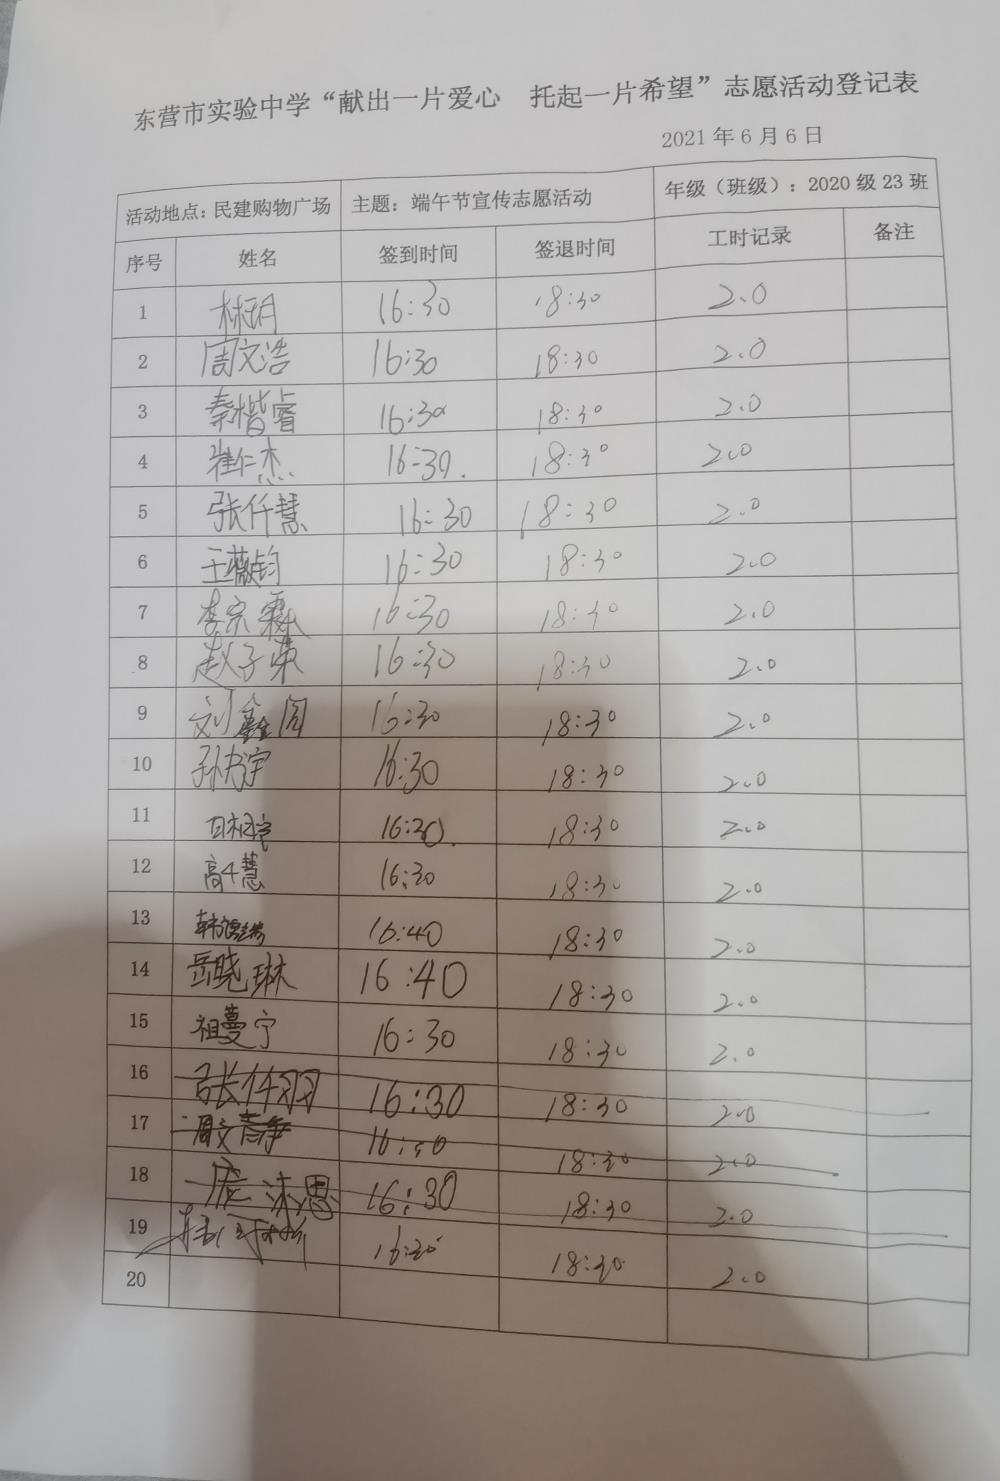 东营市实验中学“献出一片爱心 托起一片希望”志愿活动登记表
2021年6月6日
活动地点：民建购物广场 主题：端午节宣传志愿活动 年级（班级）：2020级23班
序号 姓名 签到时间 签退时间 工时记录 备注
1 林玥 16:30 18:30 2.0
2 周文浩 16:30 18:30 2.0
3 秦楷睿 16:30 18:30 2.0
4 崔仁杰 16:30. 18:30 2.0
5 张仟慧 16:30 18:30 2.0
6 王薇钧 16:30 18:30 2.0
7 李宗霖 16:30 18:30 2.0
8 赵子荣 16:30 18:30 2.0
9 刘鑫阅 16:30 18:30 2.0
10 孙书宇 16:30 18:30 2.0
11 16:30. 18:30 2.0
12 高千慧 16:30 18:30 2.0
13 16:40 18:30 2.0
14 岳晓琳 16:40 18:30 2.0
15 祖蔓宁 16:30 18:30 2.0
16 张仟羽 16:30 18:30 2.0
17 周文静 16:30 18:30 2.0
18 庞沫恩 16:30 18:30 2.0
19 16:30 18:30 2.0
20